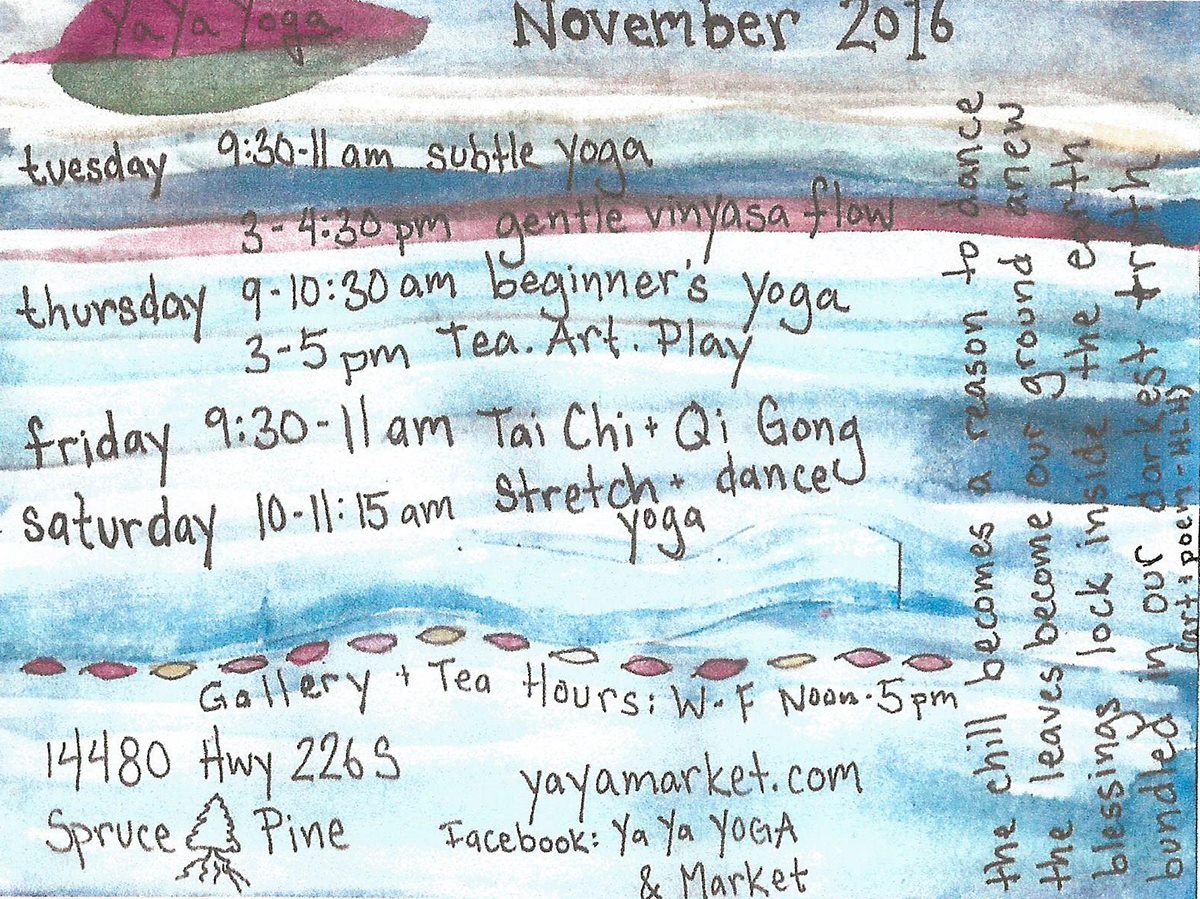 YaYa Yoga
November 2016
tuesday 9:30-11 am subtle yoga
3-4:30 pm gentle vinyasa flow
thursday 9-10:30 am beginner's yoga
3-5 pm Tea. Art. Play
friday 9:30-11 am Tai Chi + Qi Gong
saturday 10-11:15 am Stretch + dance
yoga
Gallery + Tea Hours: W-F Noon-5pm
14480 Hwy 226 S
Spruce Pine
yayamarket.com
Facebook: Ya Ya YOGA
& Market
the chill becomes a reason to dance
the leaves become our ground anew
blessings lock inside the earth
bundled in our darkest truth
(art & poem - HLH)